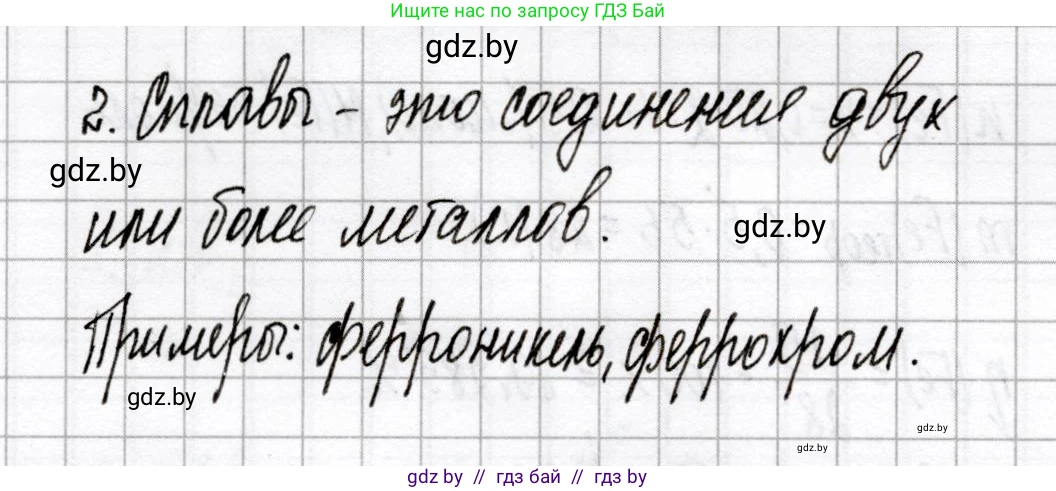 Ищите нас по запросу ГДЗ Бай
gdz.by
2. Сплавы - это соединения двух
gdz.by
или более металлов.
gdz.by
Примеры: ферроникель, феррохром.
gdz.by
gdz.by
gdz.by
gdz.by // гдз бай // гдз by